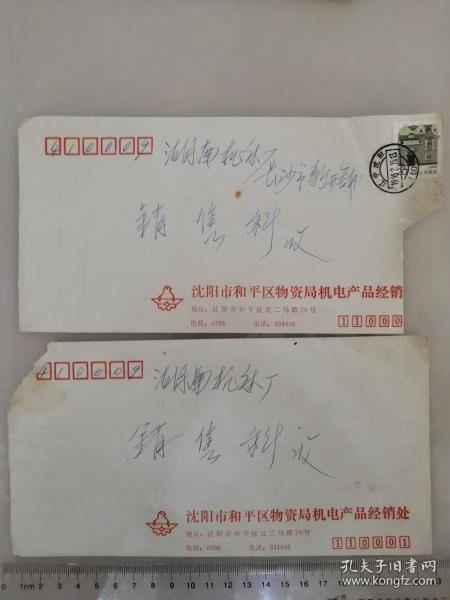 410009
湖南机床厂
长沙市新开铺
销售科收
沈阳市和平区物资局机电产品经销
地址:沈阳市和平区北二马路79号
电挂:0396 电话:334602
11000
410009
湖南机床厂
销售科收
沈阳市和平区物资局机电产品经销处
地址:沈阳市和平区北二马路79号
电挂:0396 电话:334602
110001
孔夫子旧书网
www.kongfz.com